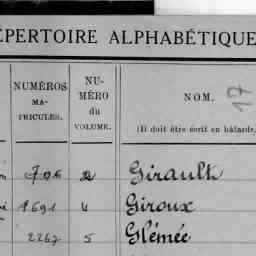 ÉPERTOIRE ALPHABÉTIQUE
NUMÉROS MA-TRICULES.
NU-MÉRO du VOLUME.
NOM.
(Il doit être écrit en bâtarde.
17
2 Girault
1691 4 Giroux
2267 5 Glémée